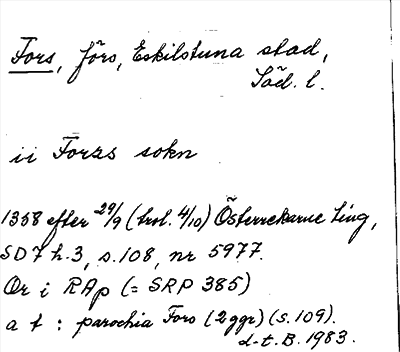 Fors, förs, Eskilstuna stad,
Söd. l.
ii Forzs sokn
1358 efter 29/9 (trol. 4/10) Österrekarne ting,
SD 7 h. 3, s. 108, nr 5977.
Or i RAp (= SRP 385)
a t : parochia Fors (2 ggr) (s. 109).
d.t.B. 1983.